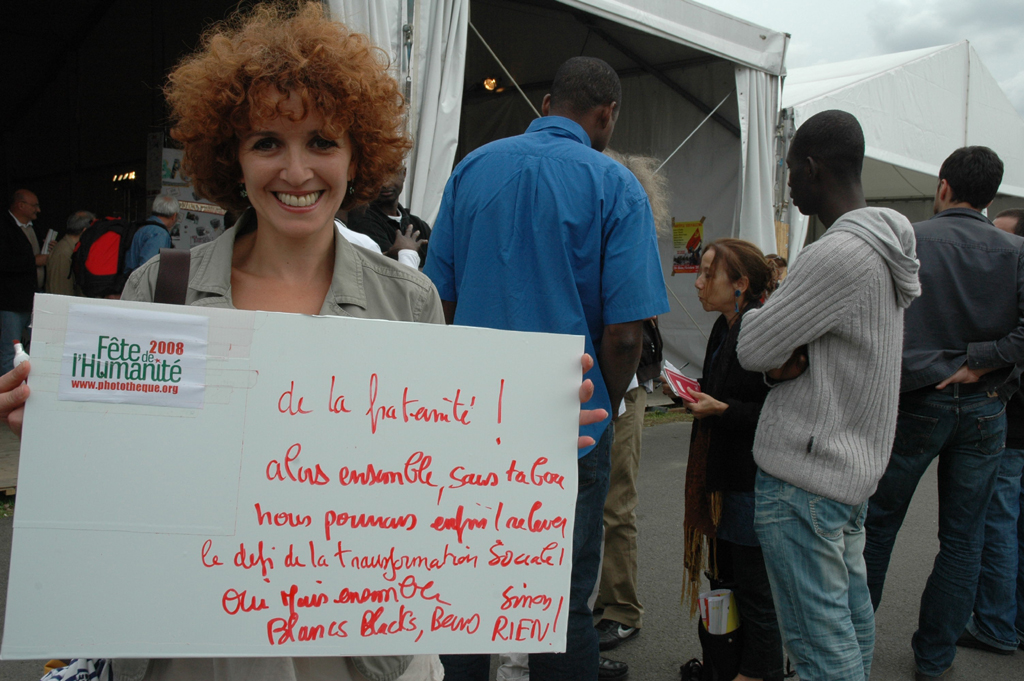 Fête de 2008
l'Humanité
www.phototheque.org
de la fraternité !
alors ensemble, sans tabou
nous pouvons enfin ! relever
le defi de la transformation Sociale !
Oui Mais ensemble
Blancs Blacks, Beurs
Sinon
RIEN !